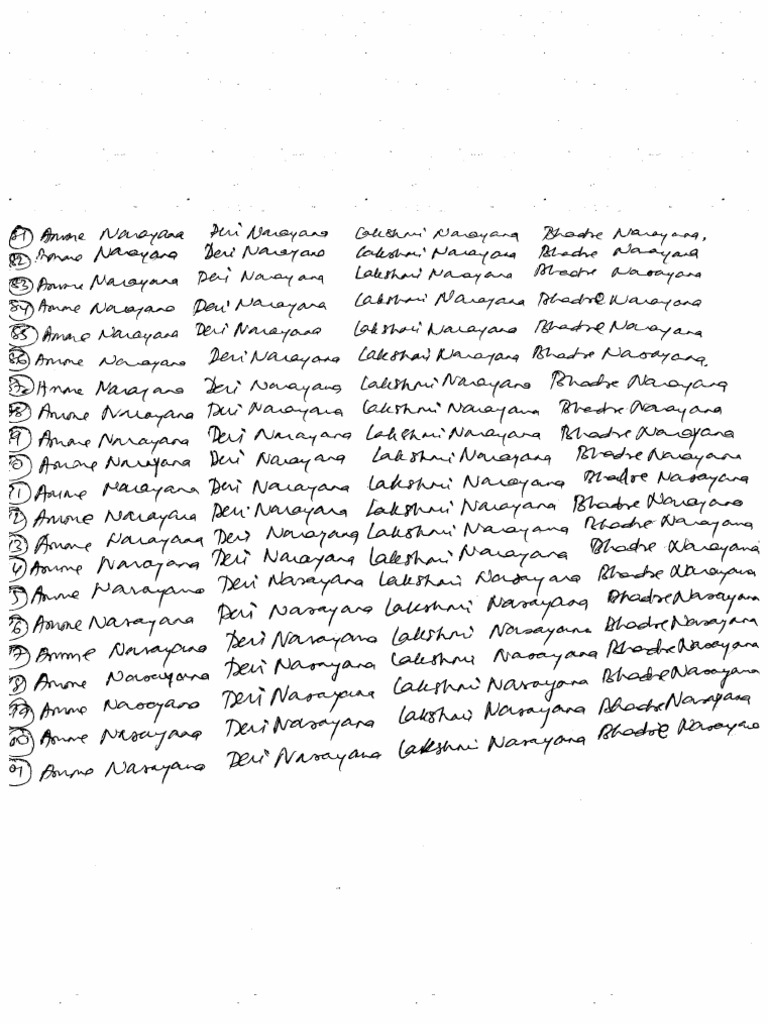 81 Amme Narayana Devi Narayana Lakshmi Narayana Bhadre Narayana.
82 Amme Narayana Devi Narayana Lakshmi Narayana Bhadre Narayana
83 Amme Narayana Devi Narayana Lakshmi Narayana Bhadre Narayana
84 Amme Narayana Devi Narayana Lakshmi Narayana Bhadre Narayana
85 Amme Narayana Devi Narayana Lakshmi Narayana Bhadre Narayana
86 Amme Narayana Devi Narayana Lakshmi Narayana Bhadre Narayana.
87 Amme Narayana Devi Narayana Lakshmi Narayana Bhadre Narayana
8 Amme Narayana Devi Narayana Lakshmi Narayana Bhadre Narayana
9 Amme Narayana Devi Narayana Lakshmi Narayana Bhadre Narayana
0 Amme Narayana Devi Narayana Lakshmi Narayana Bhadre Narayana
1 Amme Narayana Devi Narayana Lakshmi Narayana Bhadre Narayana
2 Amme Narayana Devi Narayana Lakshmi Narayana Bhadre Narayana
3 Amme Narayana Devi Narayana Lakshmi Narayana Bhadre Narayana
4 Amme Narayana Devi Narayana Lakshmi Narayana Bhadre Narayana
5 Amme Narayana Devi Narayana Lakshmi Narayana Bhadre Narayana
6 Amme Narayana Devi Narayana Lakshmi Narayana Bhadre Narayana
7 Amme Narayana Devi Narayana Lakshmi Narayana Bhadre Narayana
8 Amme Narayana Devi Narayana Lakshmi Narayana Bhadre Narayana
99 Amme Narayana Devi Narayana Lakshmi Narayana Bhadre Narayana
00 Amme Narayana Devi Narayana Lakshmi Narayana Bhadre Narayana
01 Amme Narayana Devi Narayana Lakshmi Narayana Bhadre Narayana